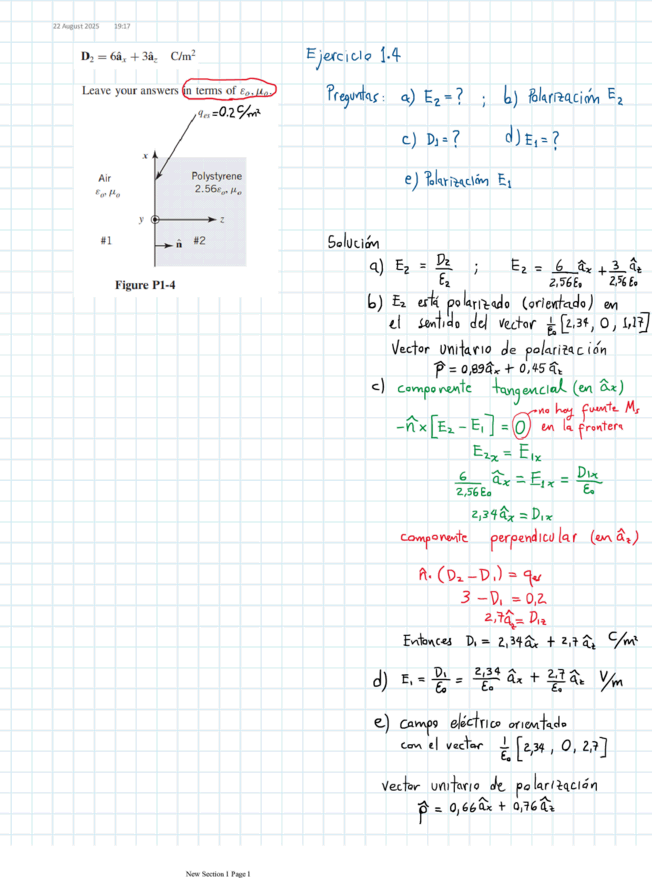 22 August 2025 19:17
D₂ = 6âₓ + 3â_z C/m²
Leave your answers in terms of ε₀, μ₀.
q_es = 0.2 C/m²
x
Air
ε₀, μ₀
Polystyrene
2.56ε₀, μ₀
y
z
#1
n̂
#2
Figure P1-4
Ejercicio 1.4
Preguntas: a) E₂ = ? ; b) Polarización E₂
c) D₁ = ? d) E₁ = ?
e) Polarización E₁
Solución
a) E₂ = D₂/ε₂ ; E₂ = 6/2,56ε₀ âₓ + 3/2,56ε₀ â_z
b) E₂ está polarizado (orientado) en
el sentido del vector 1/ε₀ [2,34, 0, 1,17]
Vector unitario de polarización
p̂ = 0,89âₓ + 0,45â_z
c) componente tangencial (en âₓ)
no hay fuente Ms
-n̂ × [E₂ - E₁] = 0 en la frontera
E₂ₓ = E₁ₓ
6/2,56ε₀ âₓ = E₁ₓ = D₁ₓ/ε₀
2,34âₓ = D₁ₓ
componente perpendicular (en â_z)
n̂. (D₂ - D₁) = q_es
3 - D₁ = 0,2
2,7â_z = D₁_z
Entonces D₁ = 2,34âₓ + 2,7â_z C/m²
d) E₁ = D₁/ε₀ = 2,34/ε₀ âₓ + 2,7/ε₀ â_z V/m
e) campo eléctrico orientado
con el vector 1/ε₀ [2,34, 0, 2,7]
vector unitario de polarización
p̂ = 0,66âₓ + 0,76â_z
New Section 1 Page 1